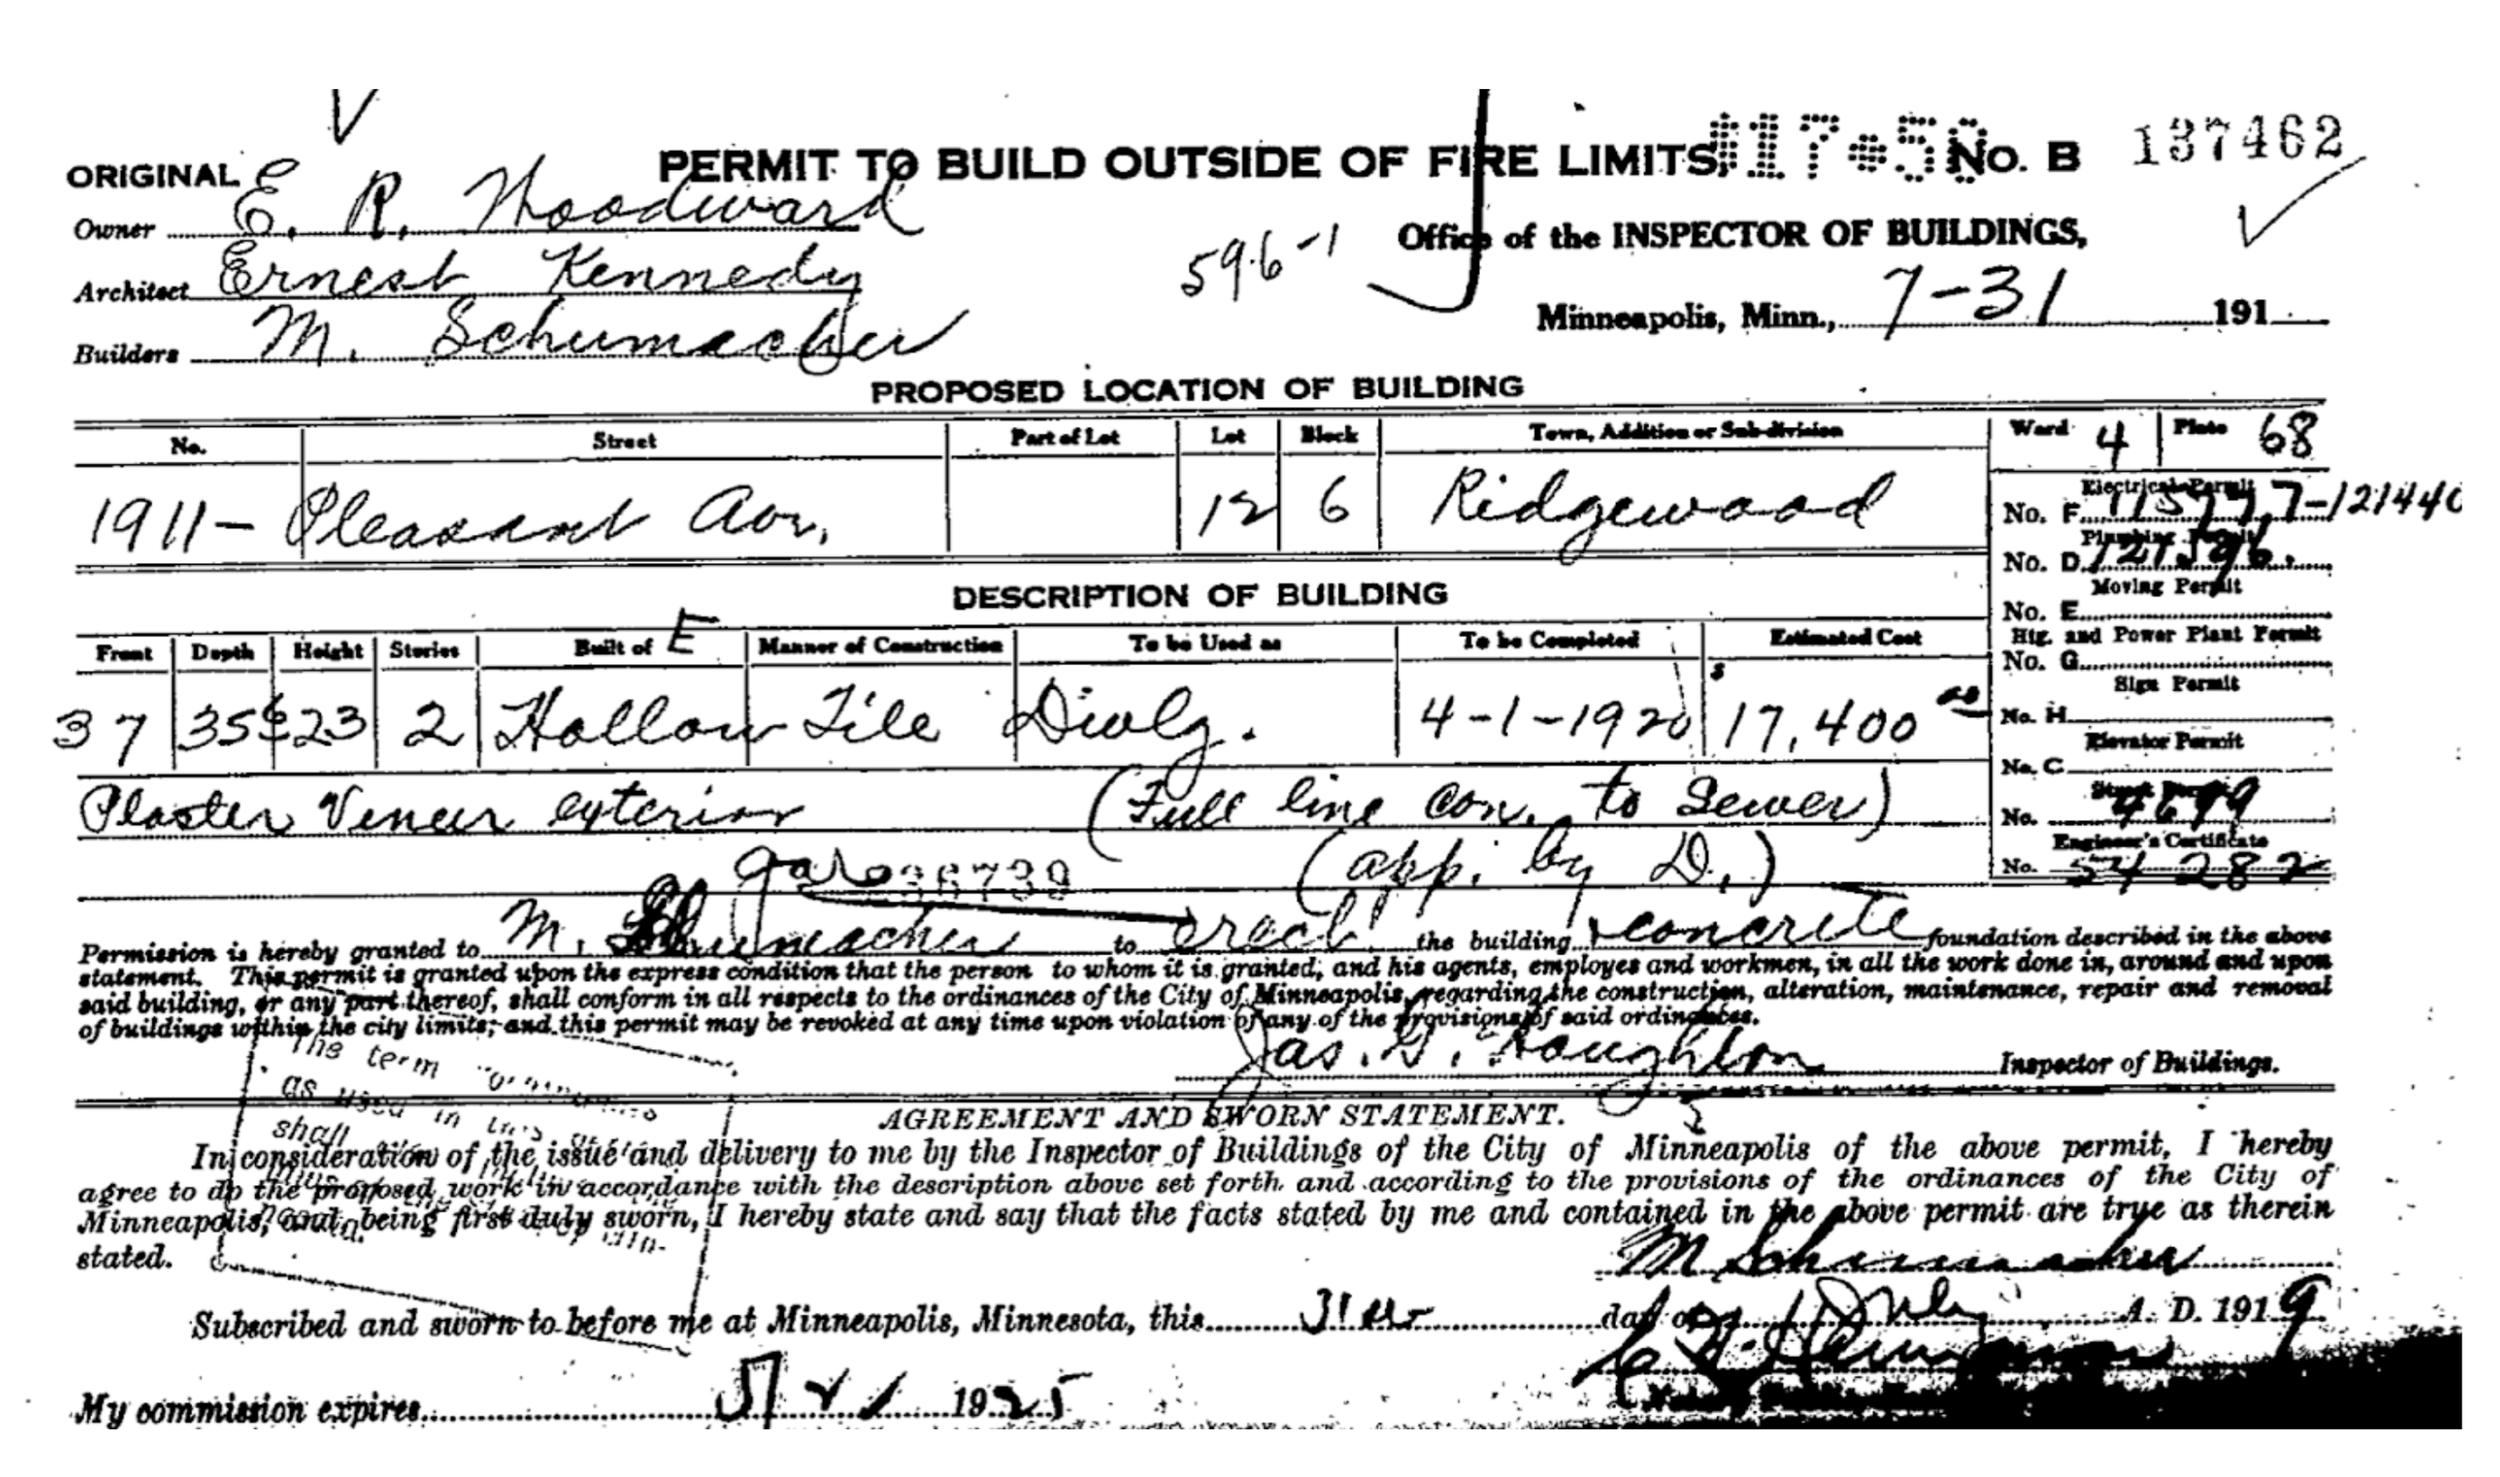 ORIGINAL PERMIT TO BUILD OUTSIDE OF FIRE LIMITS $17.50 No. B 137462
Owner E. R. Woodward
596-1 Office of the INSPECTOR OF BUILDINGS,
Architect Ernest Kennedy
Minneapolis, Minn., 7-31 191
Builders M. Schumacher
PROPOSED LOCATION OF BUILDING
No. Street Part of Lot Lot Block Town, Addition or Sub-division Ward 4 Plate 68
1911- Pleasant Ave, 12 6 Ridgewood
Electrical Permit
No. F -121440
Plumbing Permit
No. D
Moving Permit
No. E
DESCRIPTION OF BUILDING
Front Depth Height Stories Built of E Manner of Construction To be Used as To be Completed Estimated Cost
Htg. and Power Plant Permit
No. G
Sign Permit
37 35 23 2 Hollow Tile Dwlg. 4-1-1920 $ 17,400 00
No. H
Elevator Permit
No. C
Plaster Veneer exterior (Full line con. to Sewer)
Street Permit
No. 4699
(app. by D.)
Engineer's Certificate
No. 54 282
gar
Permission is hereby granted to M. Schumacher to erect the building + concrete foundation described in the above
statement. This permit is granted upon the express condition that the person to whom it is granted, and his agents, employes and workmen, in all the work done in, around and upon
said building, or any part thereof, shall conform in all respects to the ordinances of the City of Minneapolis, regarding the construction, alteration, maintenance, repair and removal
of buildings within the city limits, and this permit may be revoked at any time upon violation of any of the provisions of said ordinances.
Jas. G. Houghton Inspector of Buildings.
The term
as used in this
shall
AGREEMENT AND SWORN STATEMENT.
In consideration of the issue and delivery to me by the Inspector of Buildings of the City of Minneapolis of the above permit, I hereby
agree to do the proposed work in accordance with the description above set forth and according to the provisions of the ordinances of the City of
Minneapolis, and, being first duly sworn, I hereby state and say that the facts stated by me and contained in the above permit are true as therein
stated.
M Schumacher
Subscribed and sworn to before me at Minneapolis, Minnesota, this 31 day of July A. D. 1919
My commission expires 1925